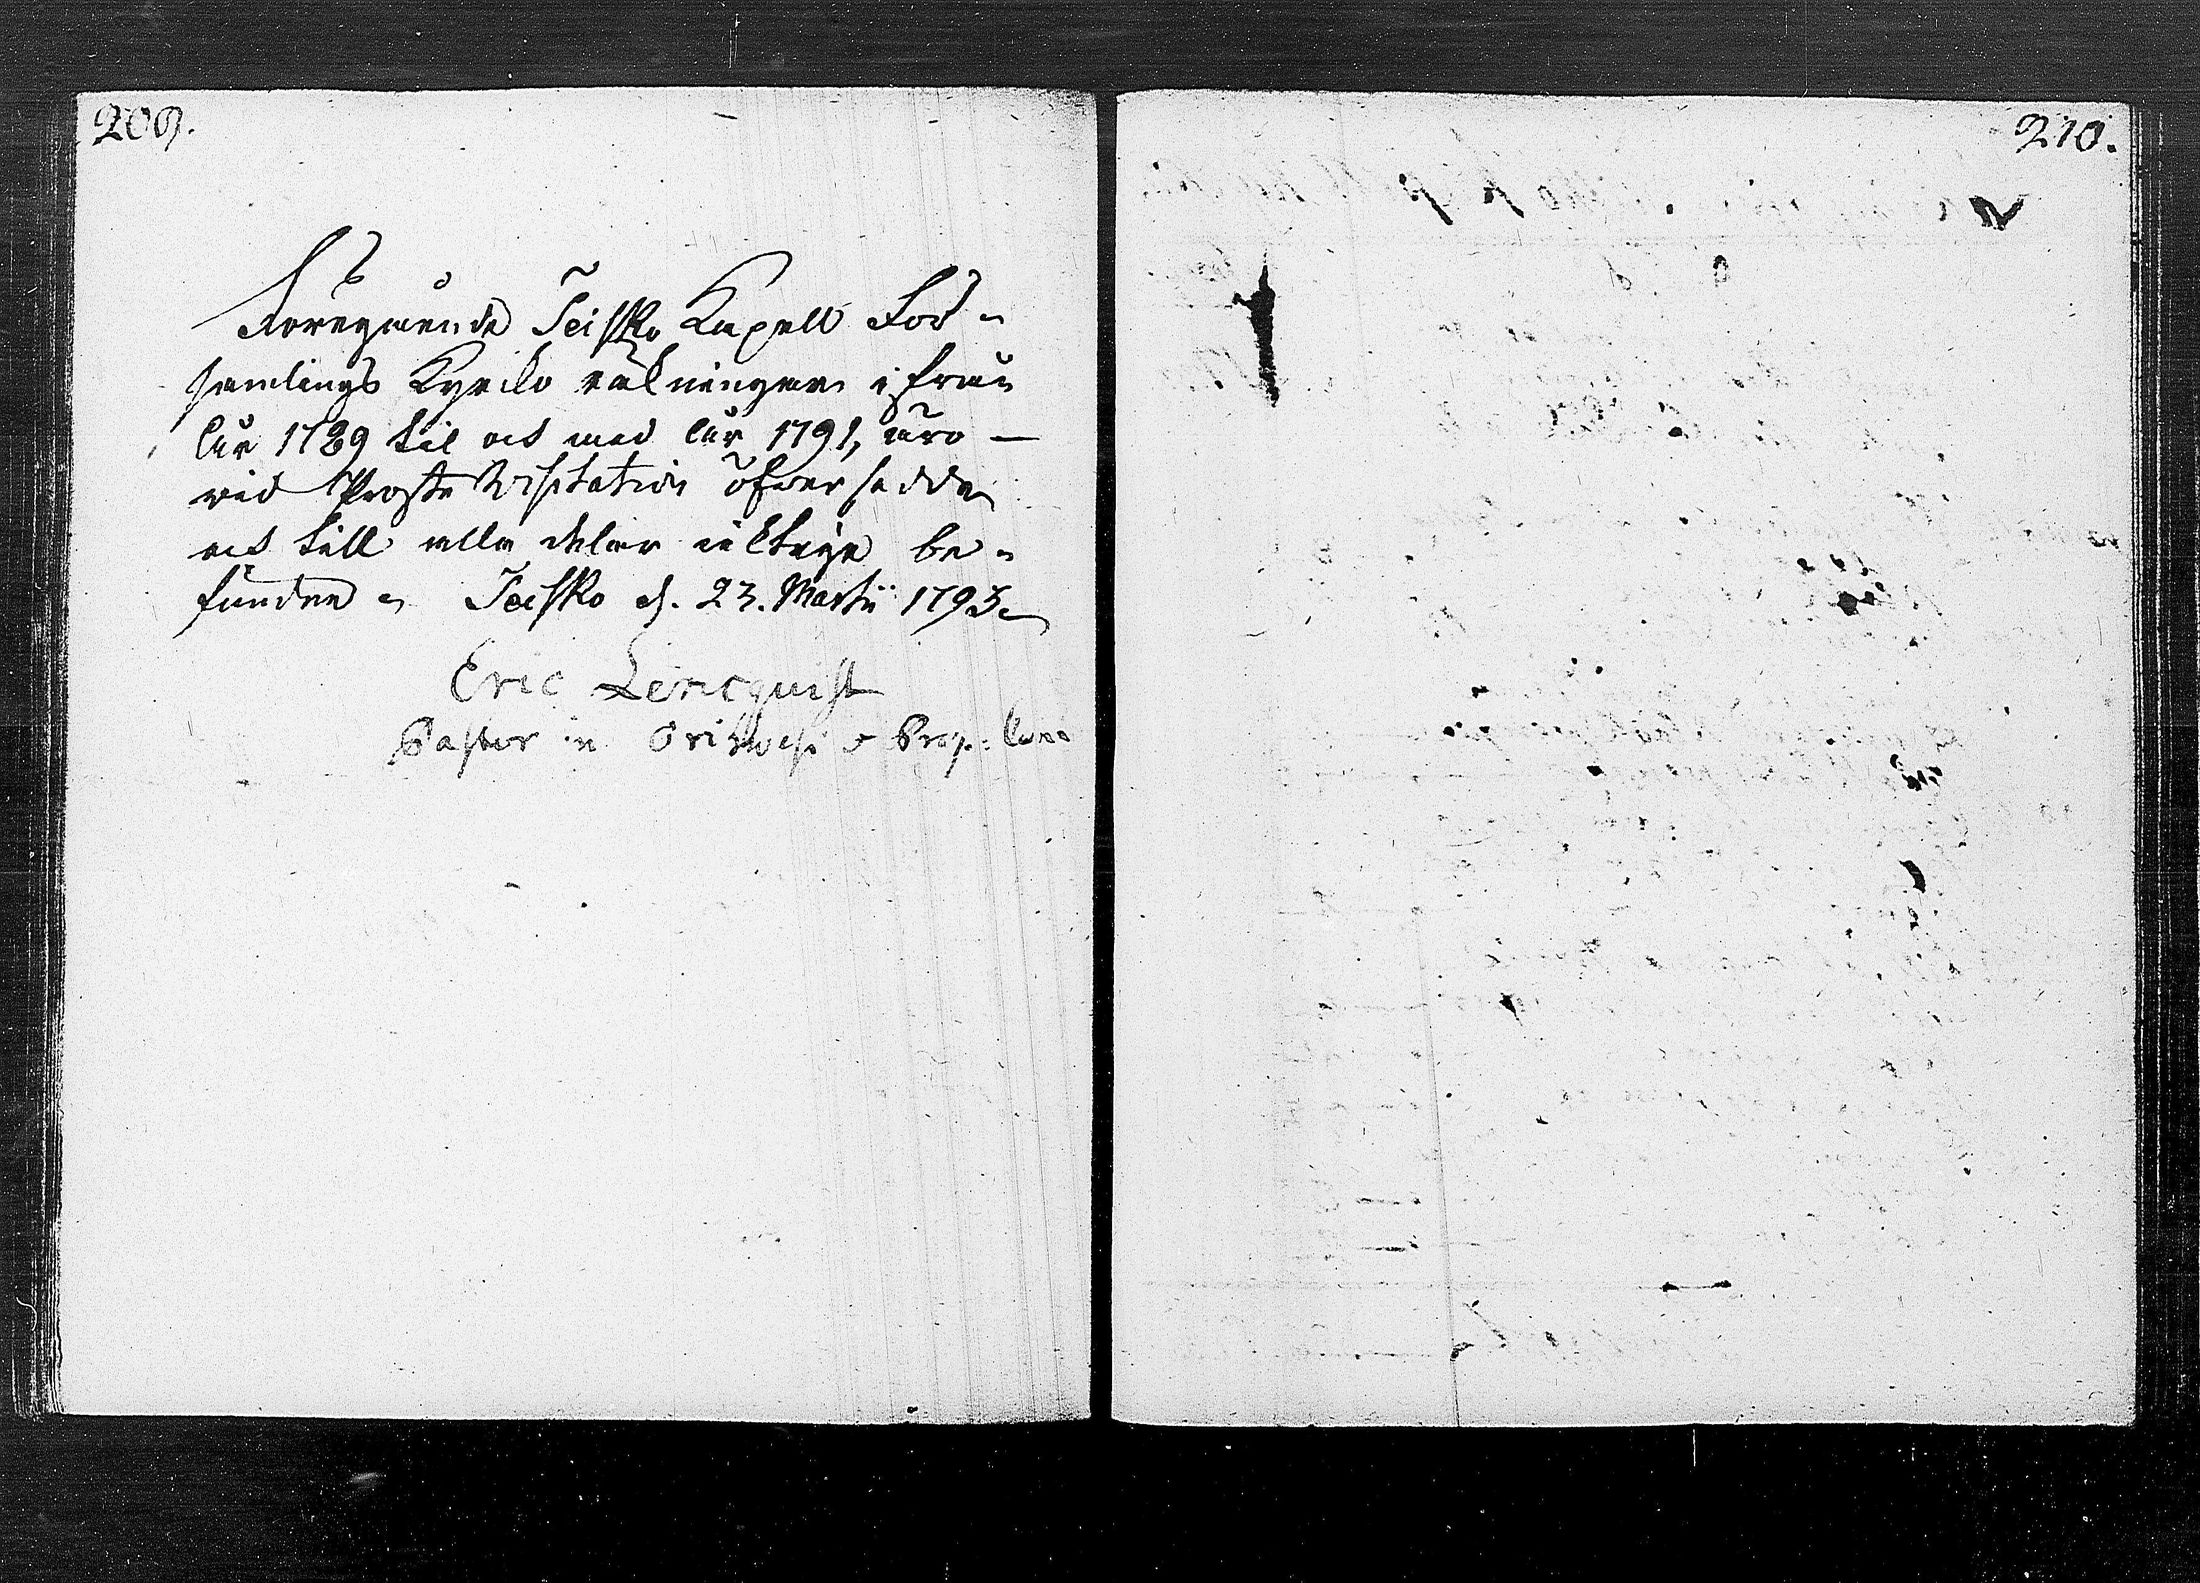 209.
Föregående Teisko Kapell För-
samlings Kyrko räkningar ifrån
år 1789 til och med år 1791, äro —
vid Proste Visitation öfversedde
och till alla delar riktige be-
fundne. Teisko d. 23. Martii 1793.
Eric Lencquist
Pastor in Orihvesi & Prop.
210.